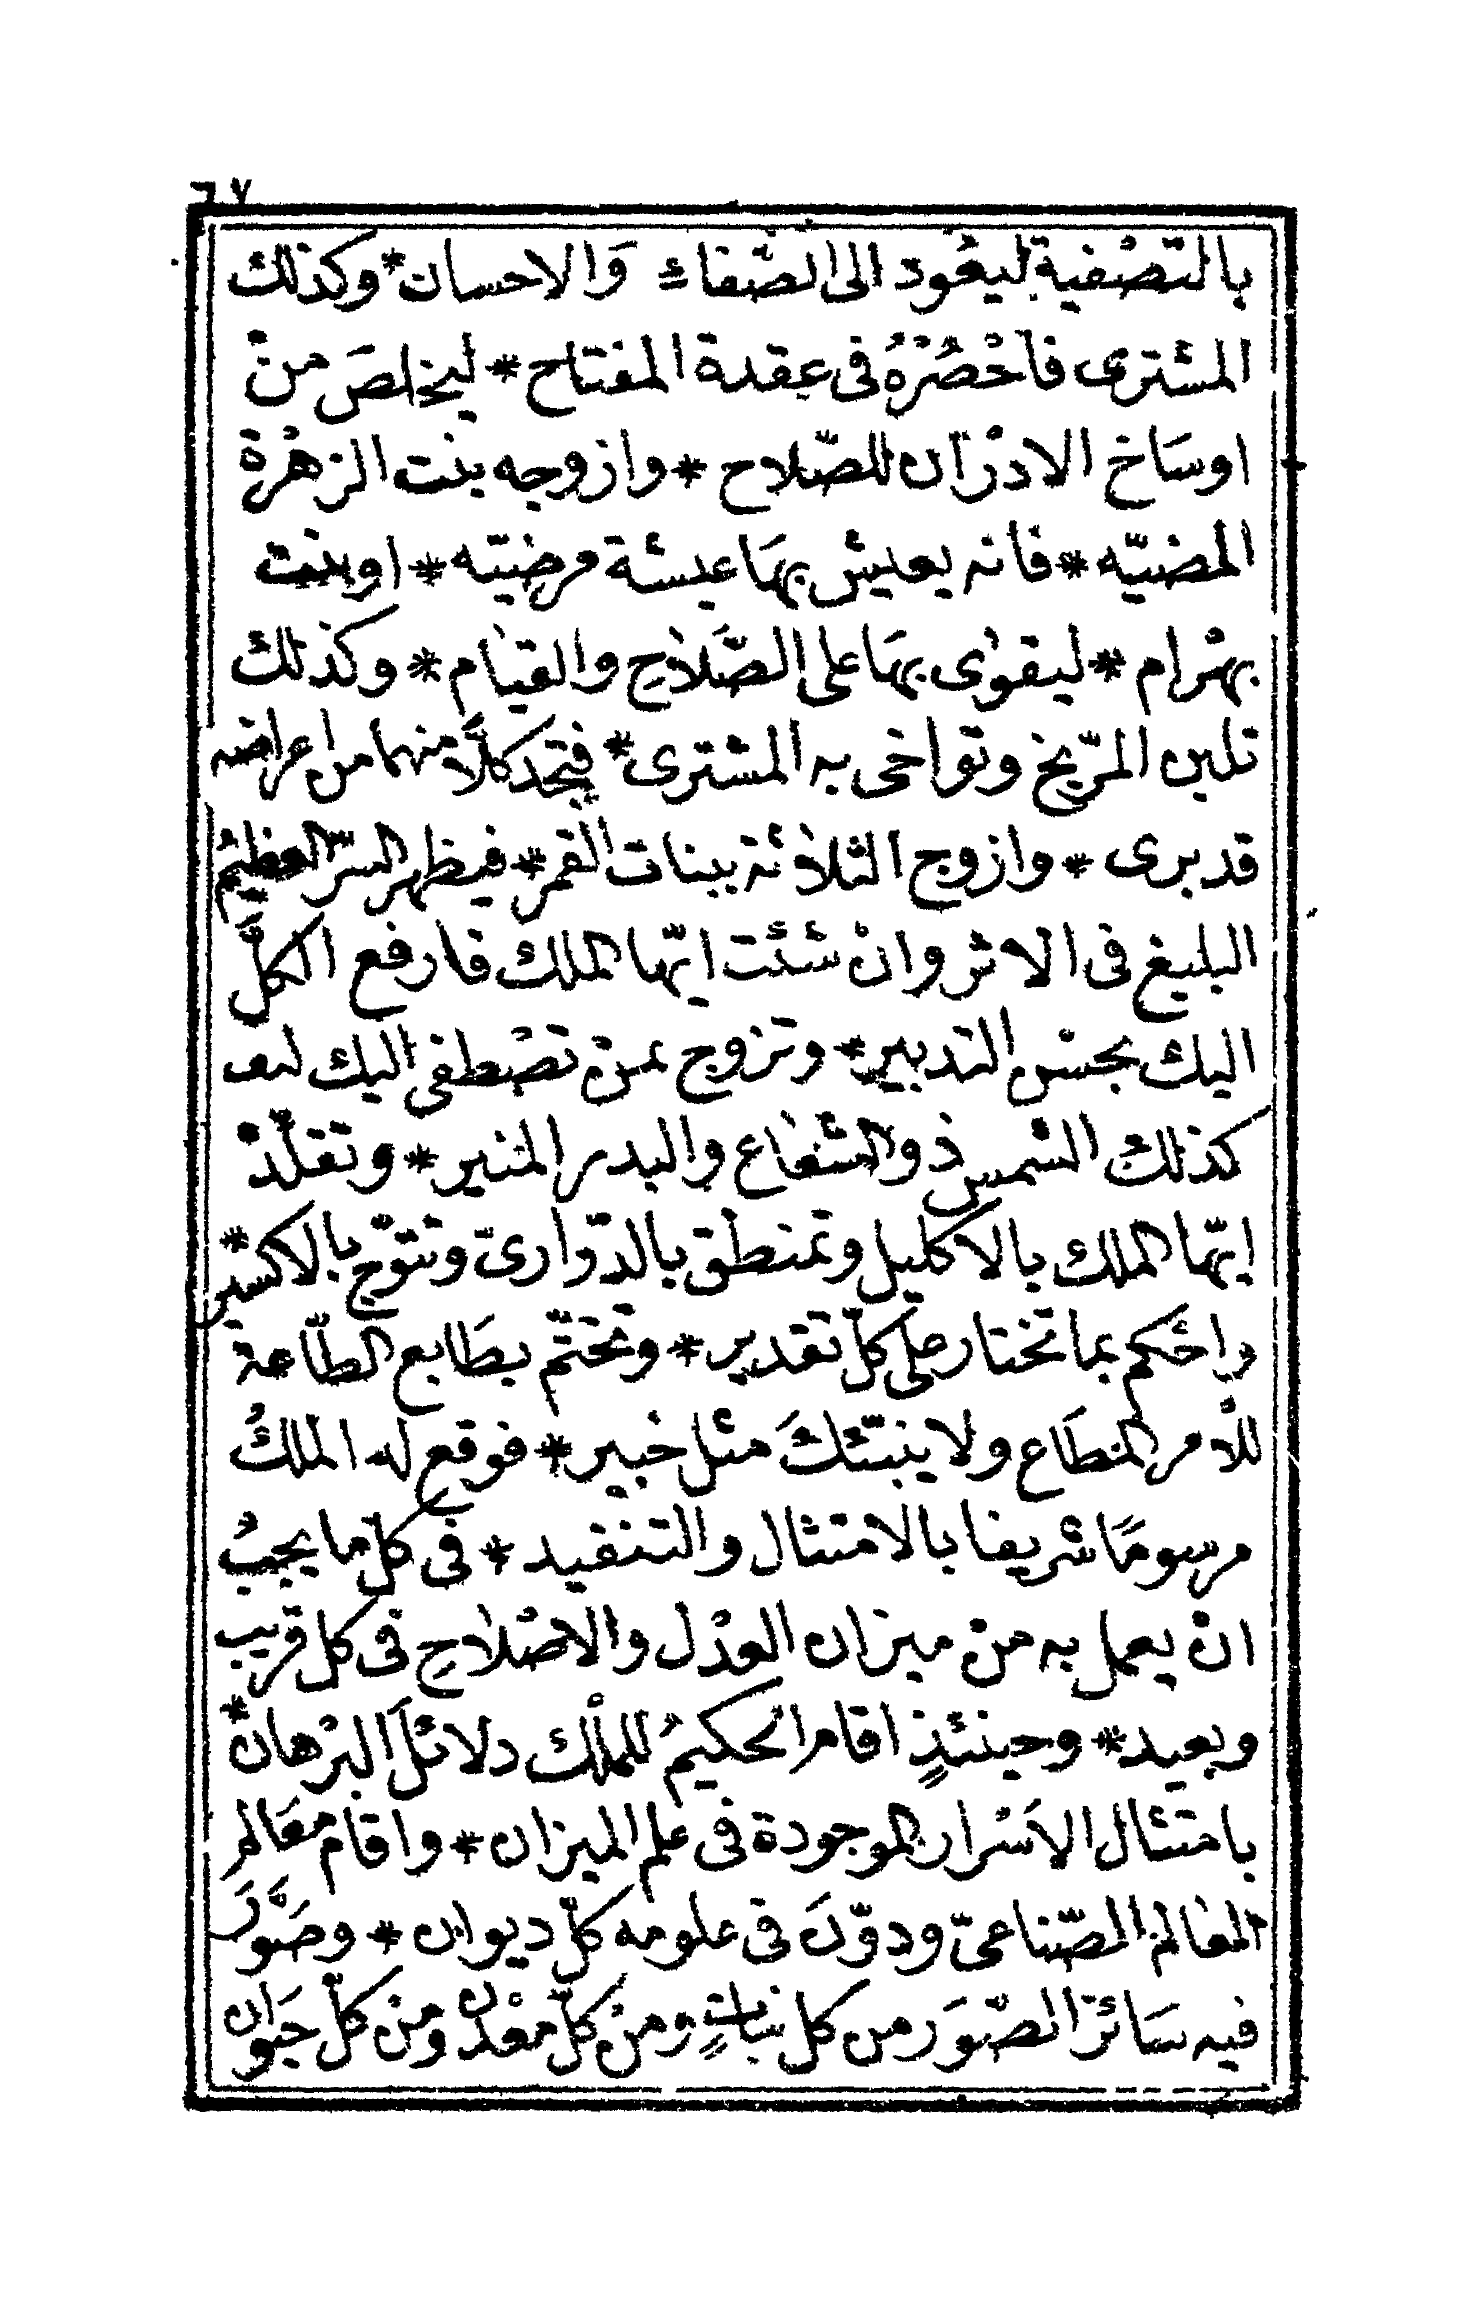 ٦٧
بالتصْفية ليعُود الى الصَّفاءِ وَالاحسان * وكذلك
المشترى فاَحْصُرْهُ فى عقدة المفتاح * ليخلصَ منْ
اوسَاخ الادرْان للصّلاح * وازوجه بنت الزهْرة
المضيّه * فانه يعيش بهَا عيشة مرضيّه * اوبنت
بهْرام * ليقوٰى بهَا على الصَّلاٰحِ والقيام * وكذلك
تلين المرّيخ وتواخى به المشترى * فتجد كلاًّ منهما من اعراضه
قد برى * وازوج الثلاثة ببنات القمر * فيظهر السرّ العظيمُ
البليغ فى الاثر وانْ شئت ايّها الملك فارفع الكلَّ
اليك بحسْن التدبير * وتزوج بمنْ تصْطفى اليك
كذلك الشمس ذو الشعاع والبدر المنير * وتقلّدْ
ايّها الملك بالاكليل وتمنطق بالدّوارىّ وتتوّج بالاكسير *
واحكم بما تختار على كلّ تقدير * وتختّم بطَابع الطّاعة
للأمر المطَاع ولا ينبّئكَ مثل خبير * فوقع له الملكُ
مرسومًا شريفا بالامتثال والتنفيد * فى كل ما يجبُ
انْ يعمل به منْ ميزان العدْل والاصْلاحِ فى كل قريب
وبعيد * وحينئذٍ اقام الحكيمُ للملْك دلائلَ البرْهانْ *
بامتثال الاَسْرار الموجودة فى علم الميزان * واقام معَالم
العالم الصّناعىّ ودوّنَ فى علومه كلّ ديوان * وصَوَّرَ
فيه سَائرَ الصّورَ من كل نباتٍ ومنْ كلّ معْدن ومنْ كلّ حَيوان